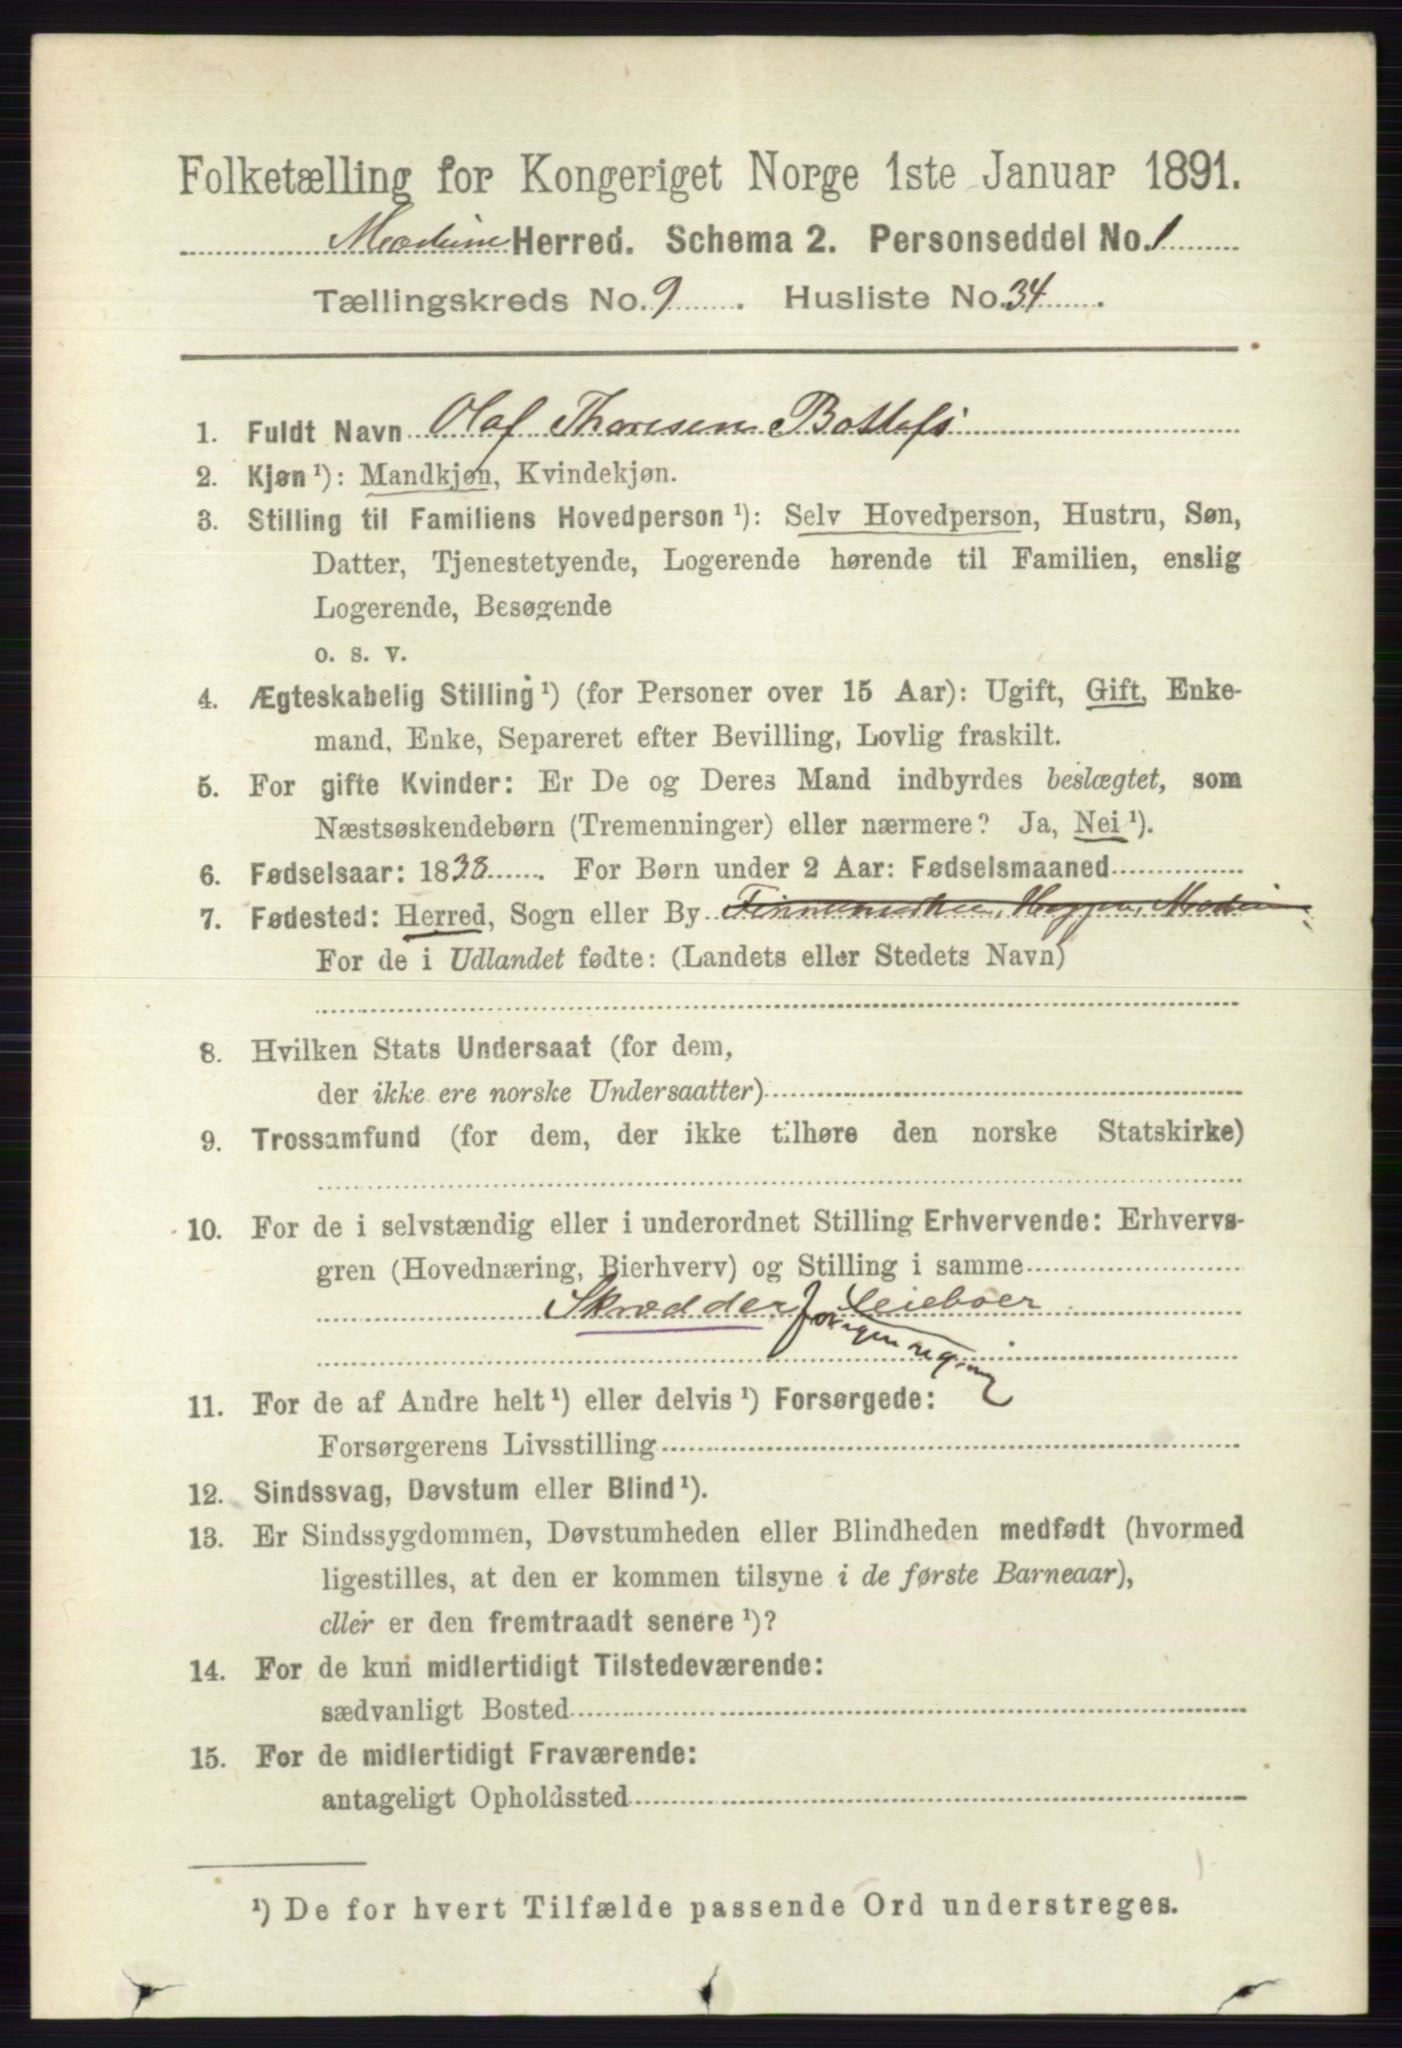 Folketælling for Kongeriget Norge 1ste Januar 1891.
Modum Herred. Schema 2. Personseddel No. 1
Tællingskreds No. 9. Husliste No. 34.
1. Fuldt Navn Olaf Thoresen
2. Kjøn ¹): Mandkjøn, Kvindekjøn.
3. Stilling til Familiens Hovedperson ¹): Selv Hovedperson, Hustru, Søn,
Datter, Tjenestetyende, Logerende hørende til Familien, enslig
Logerende, Besøgende
o. s. v.
4. Ægteskabelig Stilling ¹) (for Personer over 15 Aar): Ugift, Gift, Enke-
mand, Enke, Separeret efter Bevilling, Lovlig fraskilt.
5. For gifte Kvinder: Er De og Deres Mand indbyrdes beslægtet, som
Næstsøskendebørn (Tremenninger) eller nærmere? Ja, Nei ¹).
6. Fødselsaar: 1838. For Børn under 2 Aar: Fødselsmaaned
7. Fødested: Herred, Sogn eller By
For de i Udlandet fødte: (Landets eller Stedets Navn)
8. Hvilken Stats Undersaat (for dem,
der ikke ere norske Undersaatter)
9. Trossamfund (for dem, der ikke tilhøre den norske Statskirke)
10. For de i selvstændig eller i underordnet Stilling Erhvervende: Erhvervs-
gren (Hovednæring, Bierhverv) og Stilling i samme
Skrædder Leieboer
11. For de af Andre helt ¹) eller delvis ¹) Forsørgede:
Forsørgerens Livsstilling
12. Sindssvag, Døvstum eller Blind ¹).
13. Er Sindssygdommen, Døvstumheden eller Blindheden medfødt (hvormed
ligestilles, at den er kommen tilsyne i de første Barneaar),
eller er den fremtraadt senere ¹)?
14. For de kun midlertidigt Tilstedeværende:
sædvanligt Bosted
15. For de midlertidigt Fraværende:
antageligt Opholdssted
¹) De for hvert Tilfælde passende Ord understreges.